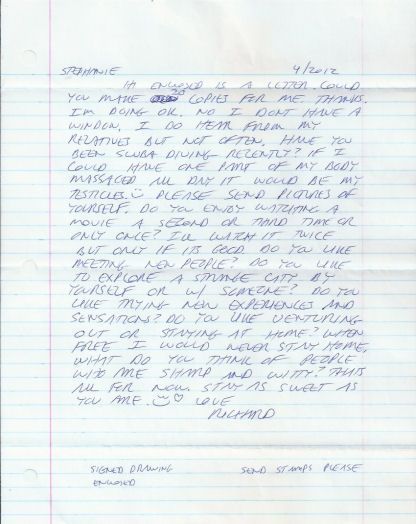 STEPHANIE 4/2012
HI ENCLOSED IS A LETTER. COULD
YOU MAKE 20 COPIES FOR ME. THANKS.
I'M DOING OK. NO I DON'T HAVE A
WINDOW. I DO HEAR FROM MY
RELATIVES BUT NOT OFTEN. HAVE YOU
BEEN SCUBA DIVING RECENTLY? IF I
COULD HAVE ONE PART OF MY BODY
MASSAGED ALL DAY IT WOULD BE MY
TESTICLES. PLEASE SEND PICTURES OF
YOURSELF. DO YOU ENJOY WATCHING A
MOVIE A SECOND OR THIRD TIME OR
ONLY ONCE? I'LL WATCH IT TWICE
BUT ONLY IF ITS GOOD. DO YOU LIKE
MEETING NEW PEOPLE? DO YOU LIKE
TO EXPLORE A STRANGE CITY BY
YOURSELF OR W/ SOMEONE? DO YOU
LIKE TRYING NEW EXPERIENCES AND
SENSATIONS? DO YOU LIKE VENTURING
OUT OR STAYING AT HOME? WHEN
FREE I WOULD NEVER STAY HOME.
WHAT DO YOU THINK OF PEOPLE
WHO ARE SHARP AND WITTY? THATS
ALL FOR NOW. STAY AS SWEET AS
YOU ARE. LOVE
RICHARD
SIGNED DRAWING SEND STAMPS PLEASE
ENCLOSED